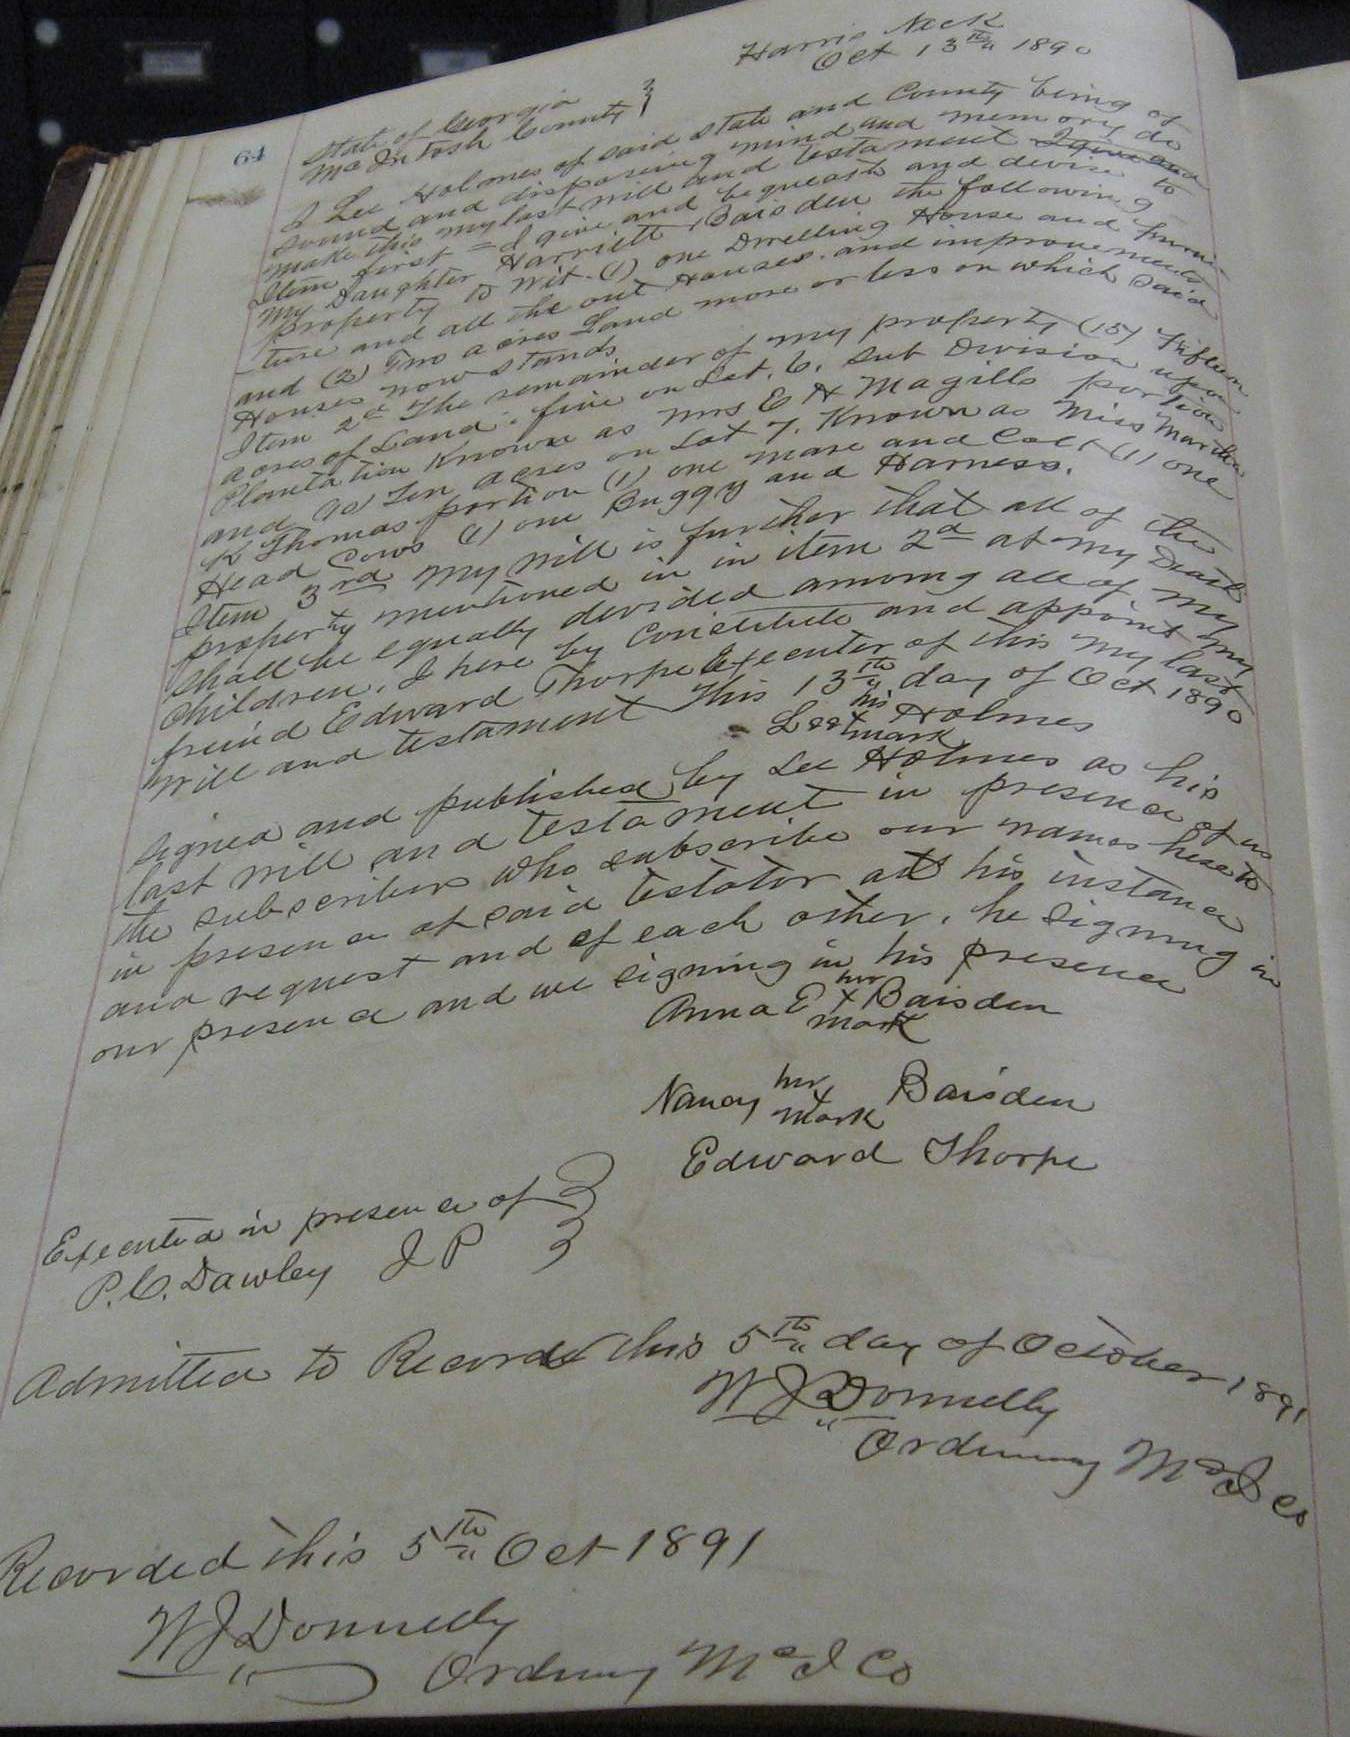 Harris Neck
Oct 13th 1890
64
State of Georgia
McIntosh County
I Lee Holmes of said state and County being of
sound and disposing mind and memory do
make this my last will and testament I give and
Item first = I give and bequeath and devise to
My Daughter Harriett Baisden the following
property to wit. (1) one Dwelling House and furni-
ture and all the out Houses. and improvements
and (2) Two acres Land more or less on which said
Houses now stands
Item 2d The remainder of my property (15) Fifteen
acres of Land. five on Lot. 6. Sub Division upon
Plantation Known as Mrs E H Magills portion
and (10) Ten acres on Lot 7. Known as Miss Martha
K Thomas portion (1) one mare and Colt (1) one
Head Cows (1) one Buggy and Harness.
Item 3rd My will is further that all of the
property mentioned in in item 2d at my Death
shall be equally devided among all of my
children. I here by Constitute and appoint my
freind Edward Thorpe Executor of this my last
will and testament This 13th day of Oct 1890
his
Lee x Holmes
mark
Signed and published by Lee Holmes as his
last will and testament in presence of us
the subscribers who subscribe our names hereto
in presence of said testator at his instance
and request and of each other, he signing in
our presence and we signing in his presence
her
Anna E x Baisden
mark
her
Nancy x Baisden
mark
Edward Thorpe
Executed in presence of
P. C. Dawley J P
Admitted to Record this 5th day of October 1891
W J Donnelly
Ordinary McI Co
Recorded this 5th Oct 1891
W J Donnelly
Ordinary McI Co